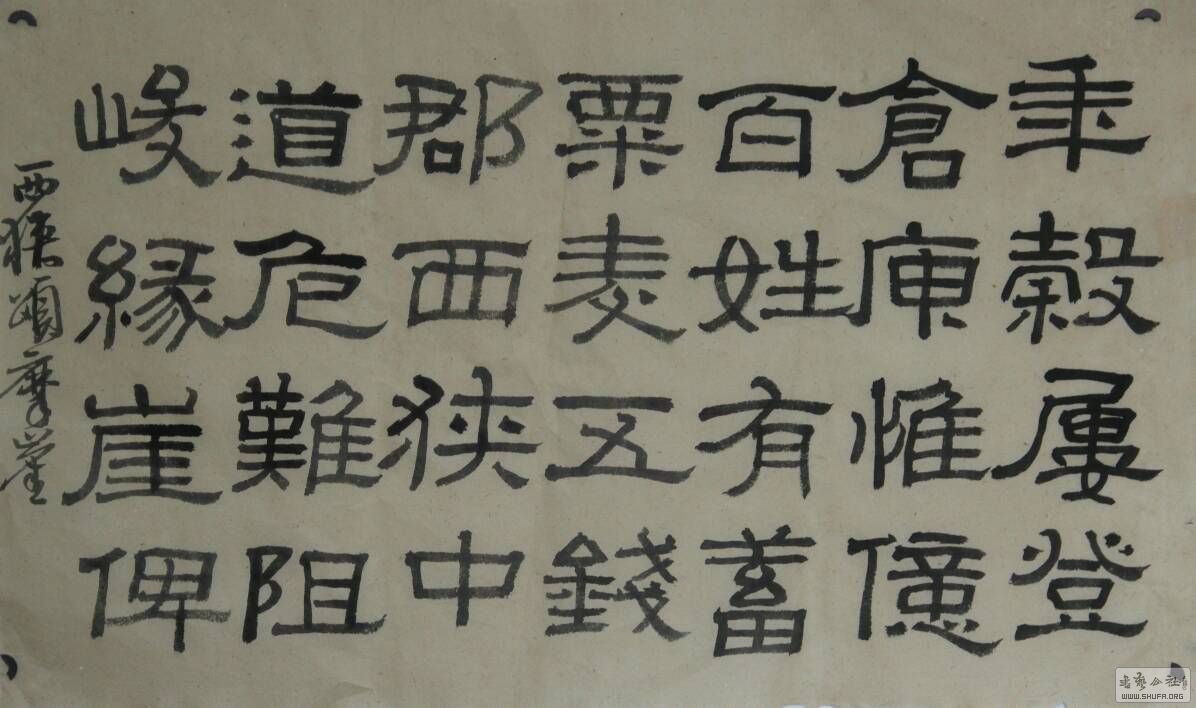 年穀屢登
倉庾惟億
百姓有蓄
粟麦五錢
郡西狭中
道危難阻
峻緣崖俾
西狭頌摩崖
书艺公社
WWW.SHUFA.ORG